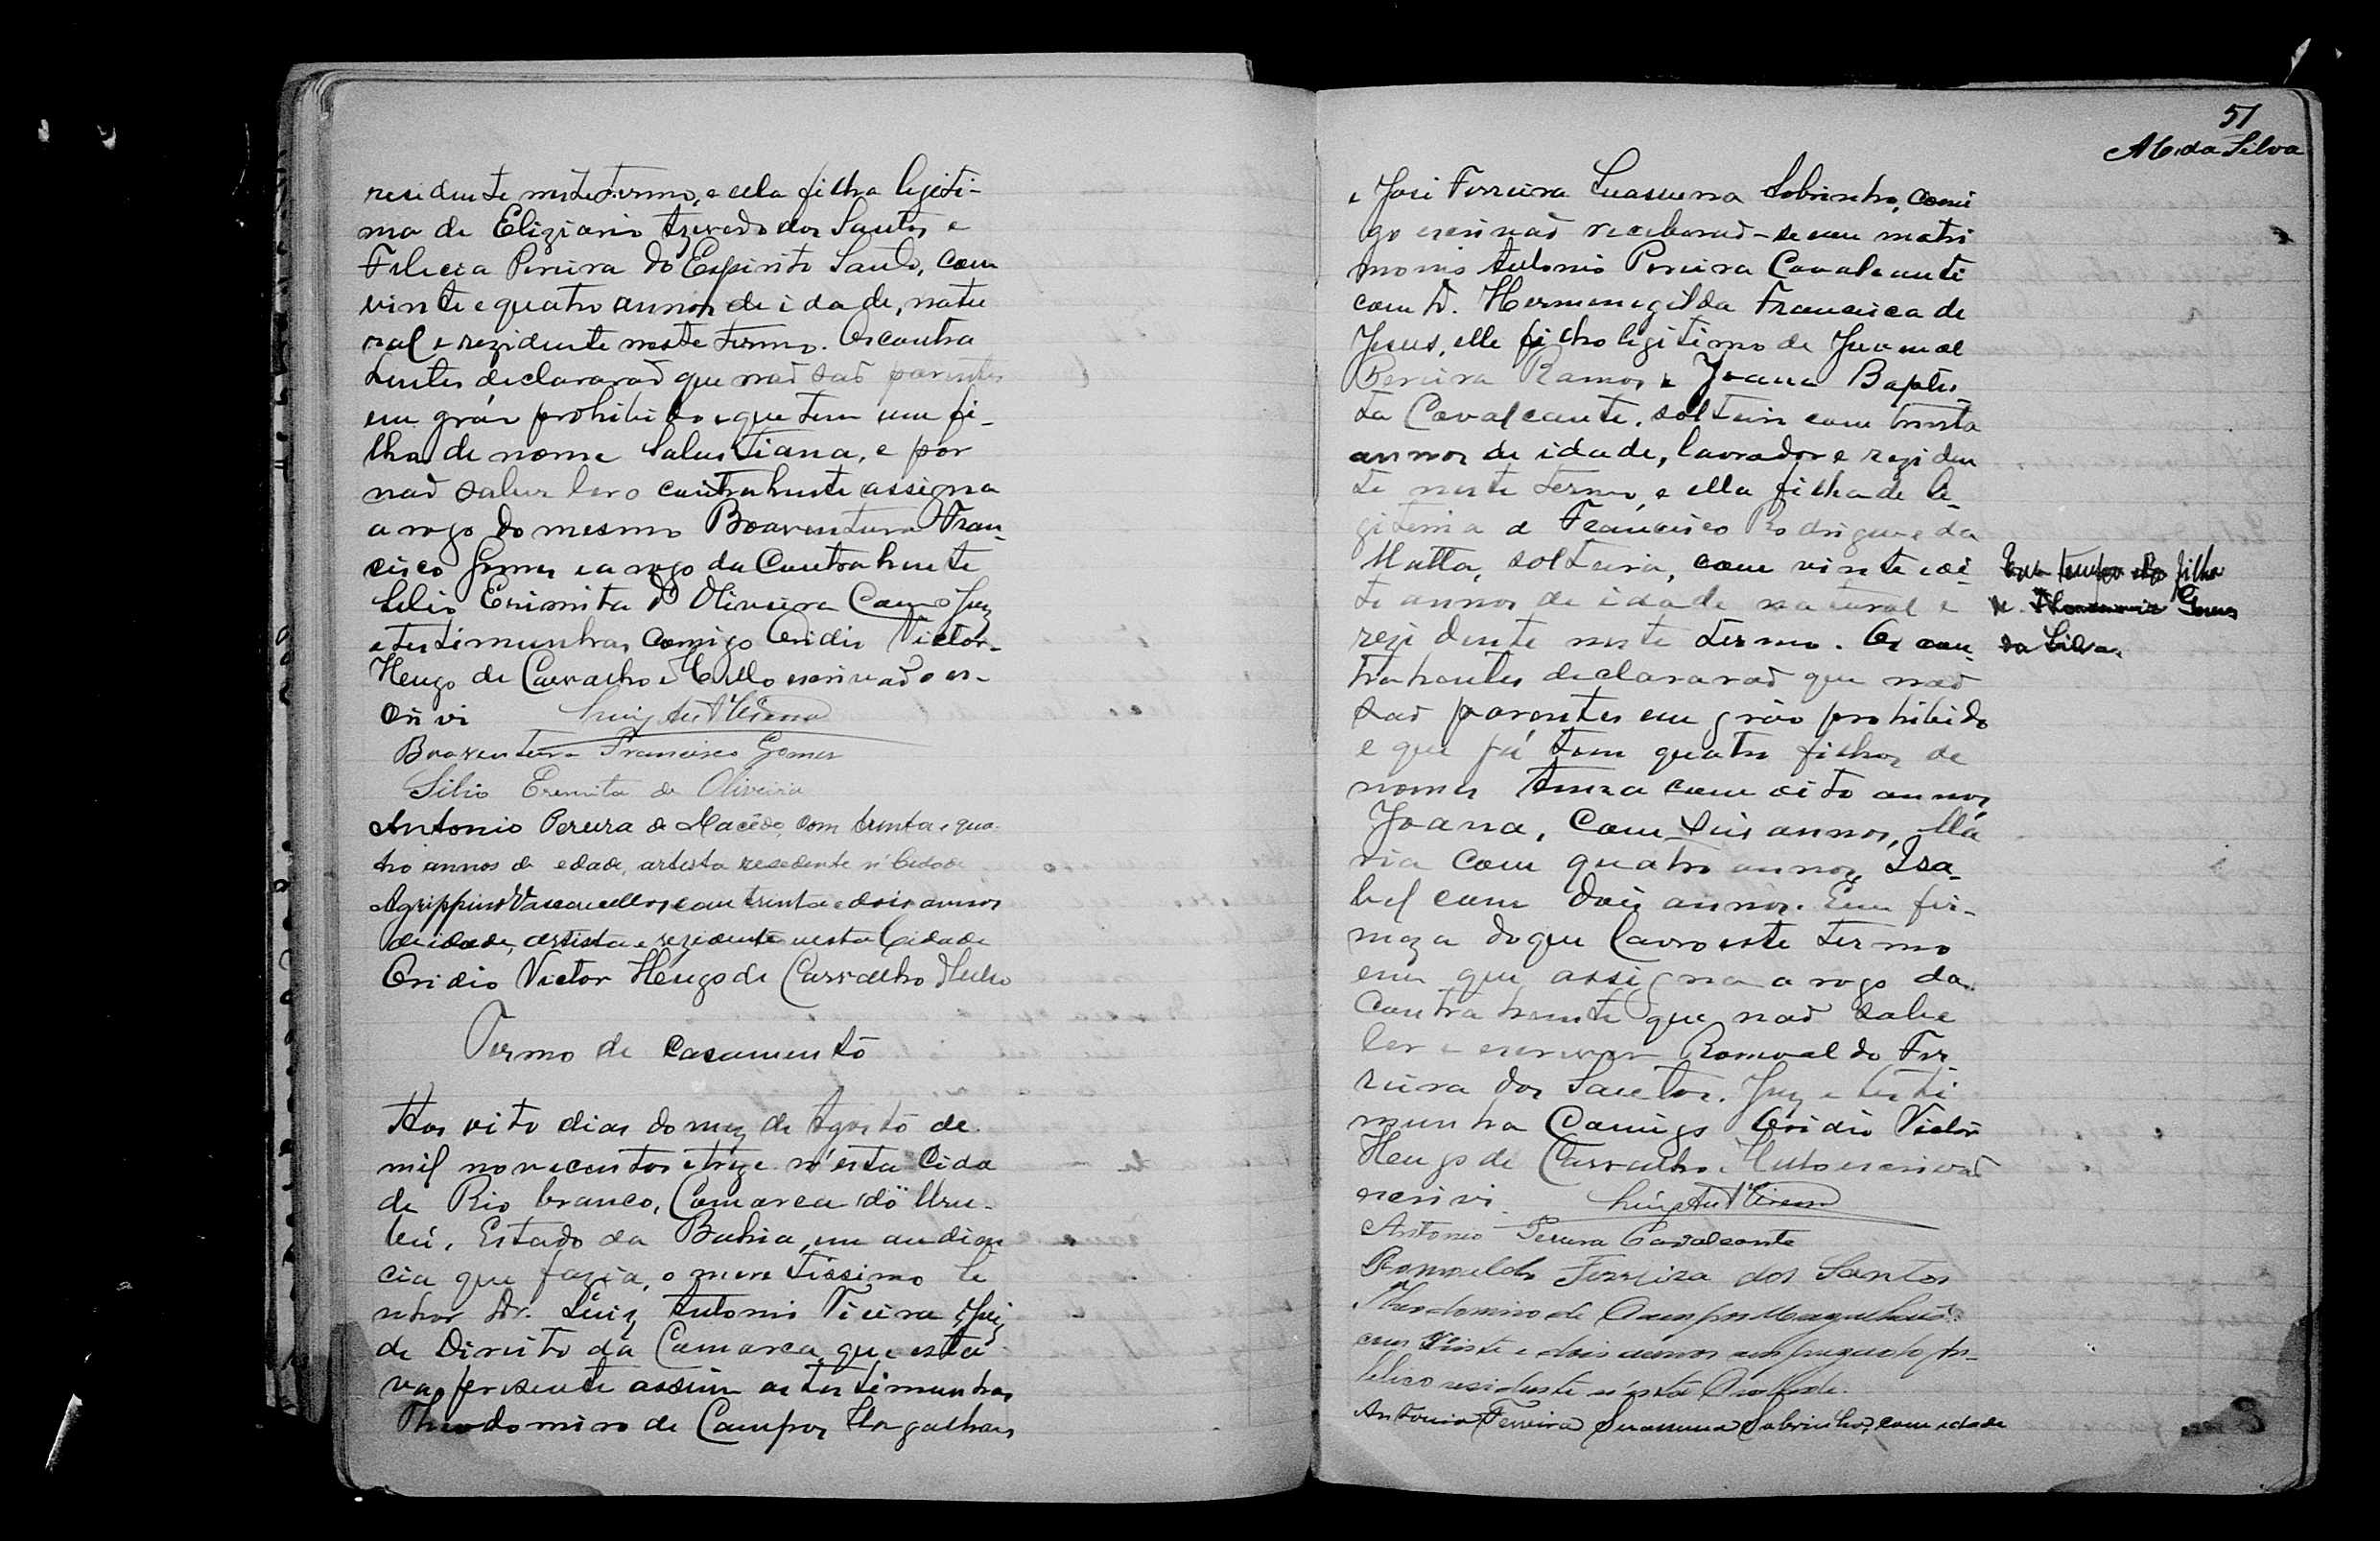 residente neste termo, e ella filha legiti-
ma de Eliziario Azevedo dos Santos e
Felicia Pereira do Espirito Santo, com
vinte e quatro annos de idade, natu
ral e rezidente neste termo. Os contra
hentes declararaõ que naõ saõ parentes
em gráu prohibido e que tem um fi-
lha de nome Salustiana, e por
naõ saber ler o contrahente assigna
a rogo do mesmo Boaventura Fran-
cisco Gomes e a rogo da Contrahente
Silio Erimita d'Oliveira Com o Juiz
e testimunhas comigo Ovidio Victor-
Hugo de Carvalho e Mello escrivaõ es-
crivi
Boaventura Francisco Gomes
Silio Eremita de Oliveira
Antonio Pereira de Macêdo, com trinta e qua-
tro annos de edade, artista residente n'Cidade
Agrippino Vasconcellos, com trinta e dois annos
de idade, artista e rezidente nesta Cidade
Ovidio Victor Hugo de Carvalho Mello
Termo de casamento
Aos oito dias do mez de Agosto de
mil novecentos e treze n'esta Cida
de Rio branco, Comarca do Uru-
bú, Estado da Bahia, em audien
cia que fazia, o meretissimo Se
nhor Dr. Luiz Antonio Vieira, Juiz
de Direito da Comarca, que esta
va presente assim as testimunhas
Theodomiro de Campos Magalhaes
51
M. da Silva
e José Ferreira Suassuna Sobrinho, comi
go escrivaõ receberaõ-se em matri
monio Antonio Pereira Cavalcanti
com D. Hermenegilda Francisca de
Jesus, elle filho legitimo de Juvenal
Pereira Ramos e Joana Baptis-
ta Cavalcante, solteiro com trinta
annos de idade, lavrador e reziden
te neste termo, e ella filha de le-
gitima de Francisco Rodrigues da
Matta, solteira, com vinte e oi-
to annos de idade natural e
rezidente neste termo. Os con-
trahentes declararaõ que naõ
saõ parentes em gráo prohibido
e que já tem quatro filhos de
nomes Anna com oito annos
Joana, com seis annos, Ma
ria com quatro annos, Isa-
bel com dois annos. Em fir-
meza do que lavro este termo
em que assigna a rogo da
contrahente que naõ sabe
ler e escrever Romoaldo Fer-
reira dos Santos. Juiz e testi
munha Comigo Ovidio Victor
Hugo de Carvalho Mello escrivaõ
escrivi.
Antonio Pereira Cavalcante
Romualdo Ferreira dos Santos
Theodomiro de Campos Magalhães
com vinte e dois annos empregado pu-
blico residente n'esta Cidade.
Antonio Ferreira Suassuna Sobrinho, com idade
Em tempo filha
de Gomes
da Silva